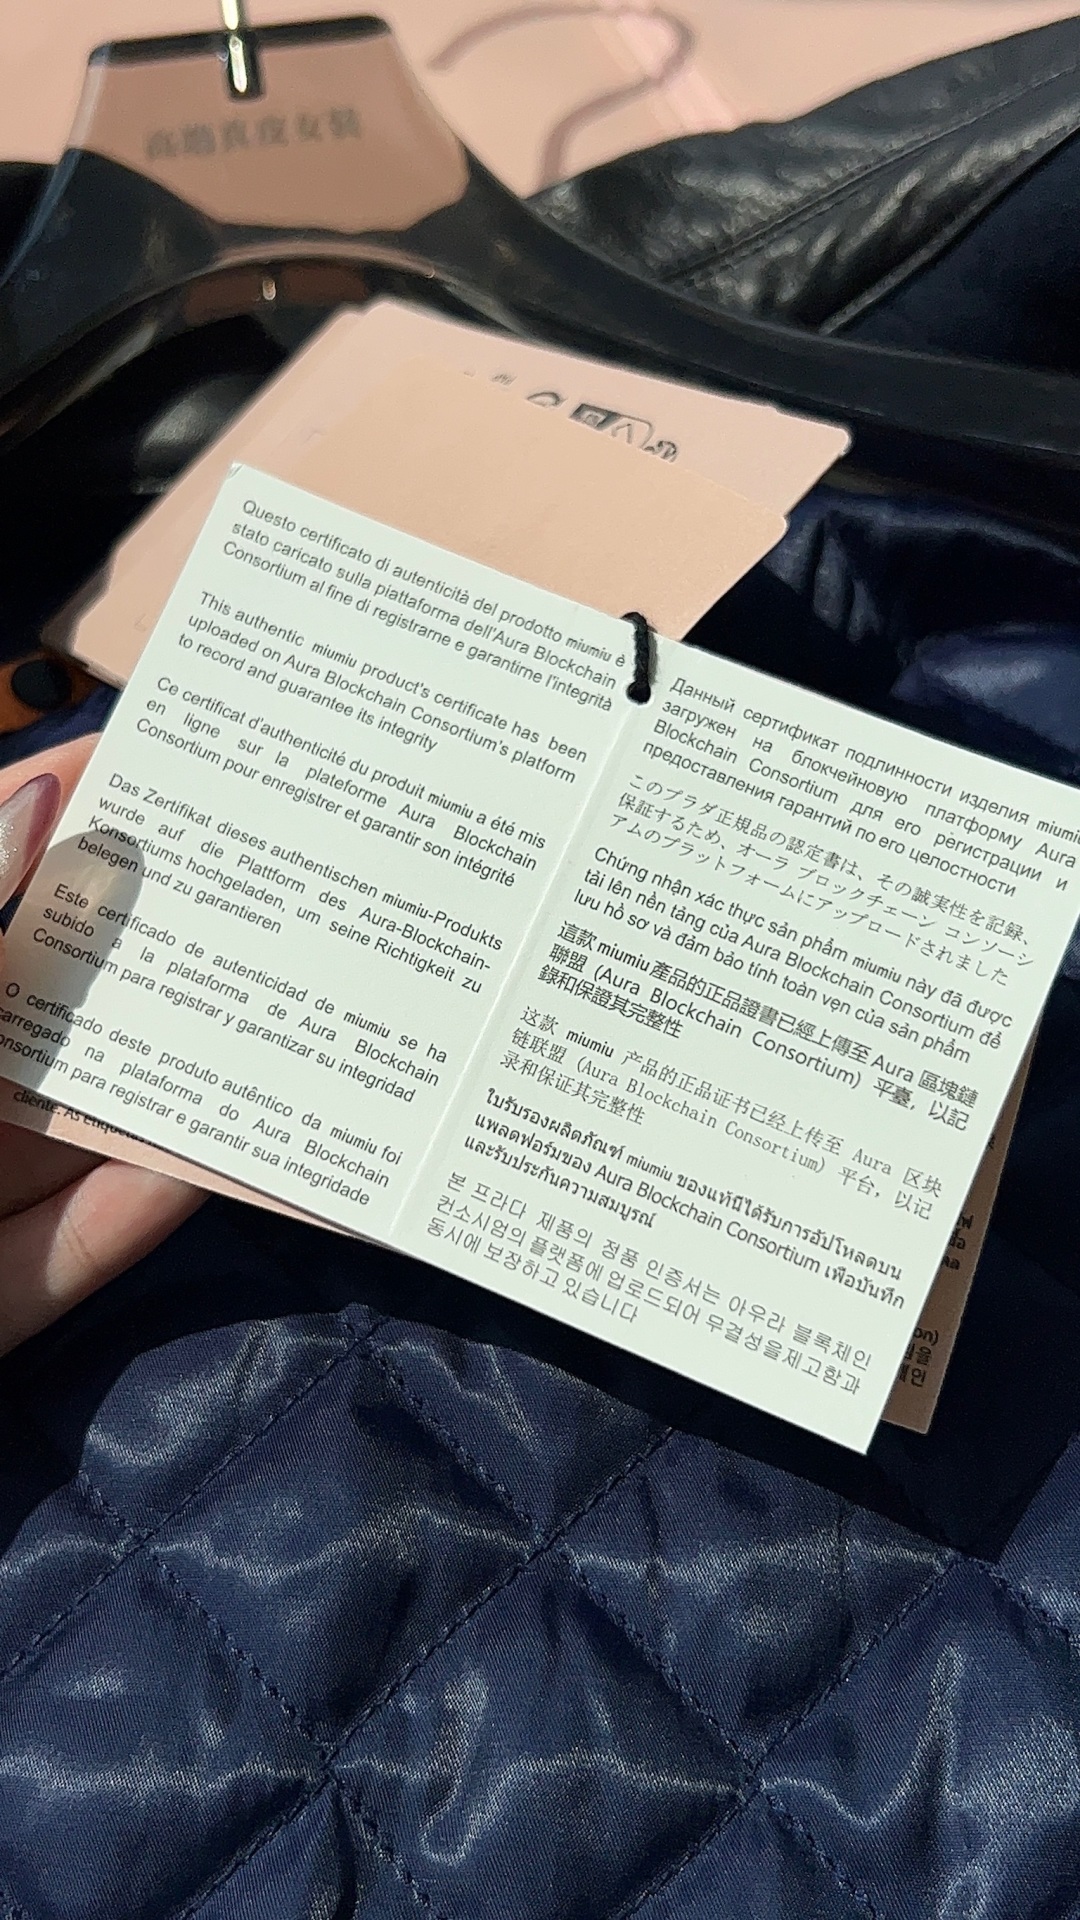 Questo certificato di autenticità del prodotto miumiu è
stato caricato sulla piattaforma dell'Aura Blockchain
Consortium al fine di registrarne e garantirne l'integrità
This authentic miumiu product's certificate has been
uploaded on Aura Blockchain Consortium's platform
to record and guarantee its integrity
Ce certificat d'authenticité du produit miumiu a été mis
en ligne sur la plateforme Aura Blockchain
Consortium pour enregistrer et garantir son intégrité
Das Zertifikat dieses authentischen miumiu-Produkts
wurde auf die Plattform des Aura-Blockchain-
Konsortiums hochgeladen, um seine Richtigkeit zu
belegen und zu garantieren
Este certificado de autenticidad de miumiu se ha
subido a la plataforma de Aura Blockchain
Consortium para registrar y garantizar su integridad
O certificado deste produto autêntico da miumiu foi
carregado na plataforma do Aura Blockchain
onsortium para registrar e garantir sua integridade
Данный сертификат подлинности изделия miumiu
загружен на блокчейновую платформу Aura
Blockchain Consortium для его регистрации и
предоставления гарантий по его целостности
このプラダ正規品の認定書は、その誠実性を記録、
保証するため、オーラ ブロックチェーン コンソーシ
アムのプラットフォームにアップロードされました
Chứng nhận xác thực sản phẩm miumiu này đã được
tải lên nền tảng của Aura Blockchain Consortium để
lưu hồ sơ và đảm bảo tính toàn vẹn của sản phẩm
這款 miumiu 產品的正品證書已經上傳至 Aura 區塊鏈
聯盟 (Aura Blockchain Consortium) 平臺，以記
錄和保證其完整性
这款 miumiu 产品的正品证书已经上传至 Aura 区块
链联盟 (Aura Blockchain Consortium) 平台，以记
录和保证其完整性
ใบรับรองผลิตภัณฑ์ miumiu ของแท้นี้ได้รับการอัปโหลดบน
แพลตฟอร์มของ Aura Blockchain Consortium เพื่อบันทึก
และรับประกันความสมบูรณ์
본 프라다 제품의 정품 인증서는 아우라 블록체인
컨소시엄의 플랫폼에 업로드되어 무결성을제고함과
동시에 보장하고 있습니다